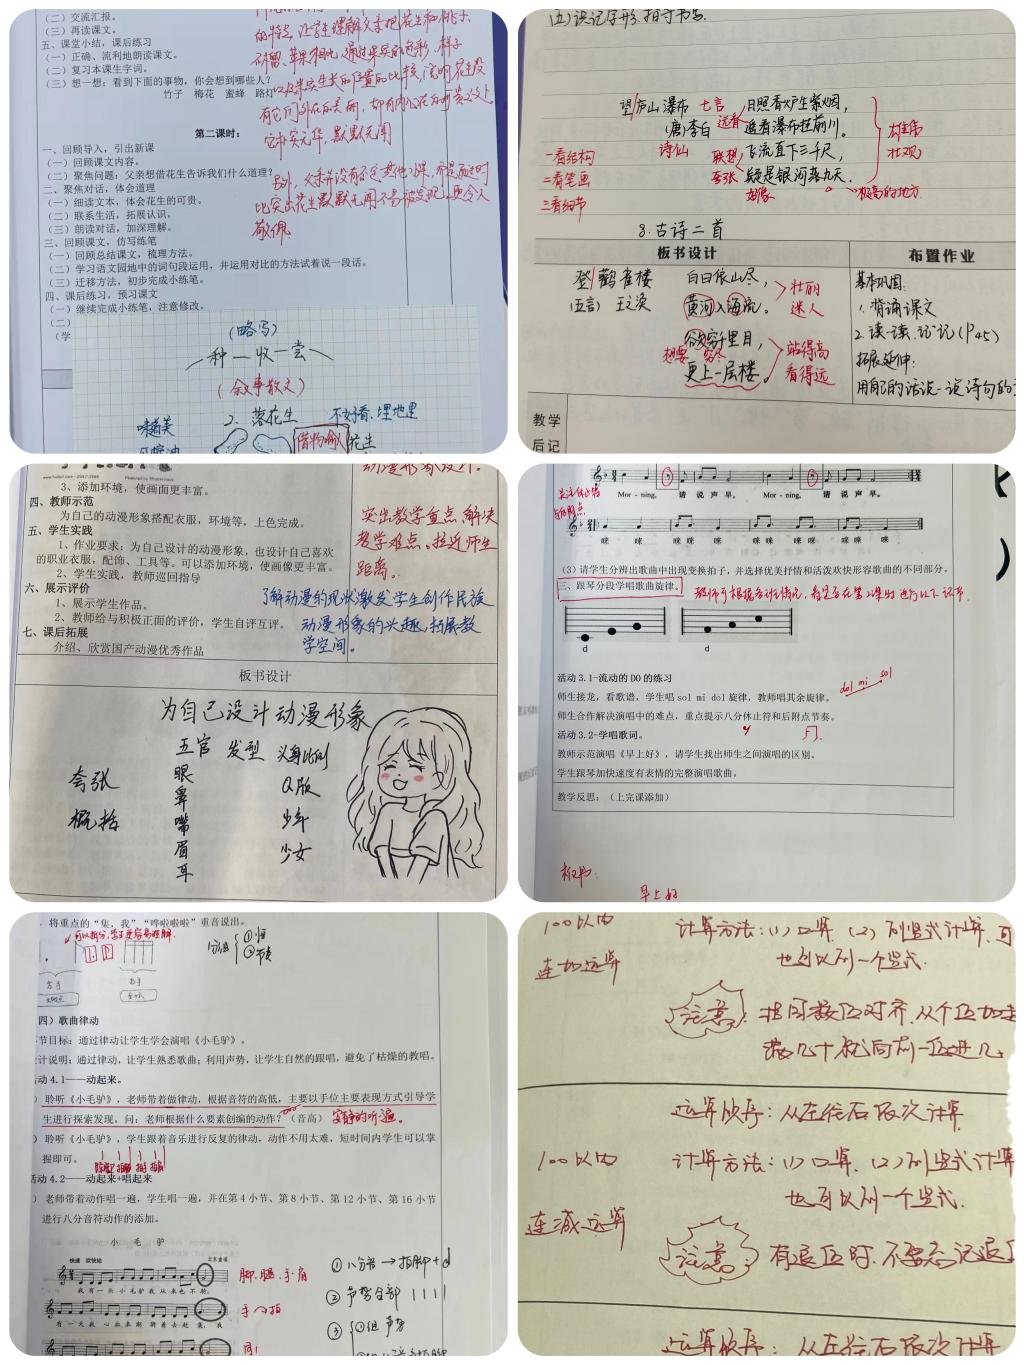 （二）交流汇报。
（三）再读课文。
五、课堂小结，课后练习
（一）正确、流利地朗读课文。
（二）复习本课生字词。
（三）想一想：看到下面的事物，你会想到哪些人？
竹子 梅花 蜜蜂 路灯
石榴、苹果相比，通过果实的色彩、样子
以及果实生长的位置的比较，说明花生没
有它们外在的美丽，却有内心
它朴实无华，默默无闻
另外，父亲并没有否定其他水果，而是通过对
比突出花生默默无闻不易被发现，更令人
敬佩
第二课时：
一、回顾导入，引出新课
（一）回顾课文内容。
（二）聚焦问题：父亲想借花生告诉我们什么道理？
二、聚焦对话，体会道理
（一）细读文本，体会花生的可贵。
（二）联系生活，拓展认识。
（三）朗读对话，加深理解。
三、回顾课文，仿写练笔
（一）回顾总结课文，梳理方法。
（二）学习语文园地中的词句段运用，并运用对比的方法试着说一段话。
（三）迁移方法，初步完成小练笔。
四、课后练习，预习课文
（一）继续完成小练笔，注意修改。
（二）
（学
（略写）
种—收—尝
（叙事散文）
2. 落花生 不好看、埋地里
借物喻人 花生
（五）识记字形，指导书写。
望庐山瀑布 七言 日照香炉生紫烟，
（唐）李白 远看 遥看瀑布挂前川。
诗仙 联想 飞流直下三千尺，
夸张 疑是银河落九天。
好像 极高的地方
雄伟
壮观
一看结构
二看笔画
三看细节
8. 古诗二首
板书设计 布置作业
登鹳雀楼 白日依山尽，
（五言） 王之涣 黄河入海流。
壮丽
迷人
欲穷千里目，
想要 穷尽
更上一层楼。
站得高
看得远
基本巩固：
1. 背诵课文
2. 读一读，记一记（P45）
拓展延伸：
用自己的话说一说诗句的
教学
后记
3、添加环境，使画面更丰富。
四、教师示范
为自己的动漫形象搭配衣服，环境等，上色完成。
五、学生实践
1、作业要求：为自己设计的动漫形象，也设计自己喜欢
的职业衣服，配饰、工具等。可以添加环境，使画像更丰富。
2、学生实践，教师巡回指导
六、展示评价
1、展示学生作品。
2、教师给与积极正面的评价，学生自评互评。
七、课后拓展
介绍、欣赏国产动漫优秀作品
动漫形象设计。
突出教学重点，解决
教学难点。拉近师生
距离。
了解动漫的现状激发学生创作民族
动漫形象的兴趣，拓展教
学空间。
板书设计
为自己设计动漫形象
五官 发型 头身比例
夸张 眼 Q版
鼻
概括 嘴 少年
眉 少女
耳
Mor - ning, 请 说 声 早。 Mor - ning, 请 说 声 早。
咪 咪 咪 咪 咪 咪 咪 咪 咪 咪 咪
（3）请学生分辨出歌曲中出现变换拍子，并选择优美抒情和活泼欢快形容歌曲的不同部分。
三、跟琴分段学唱歌曲旋律。
教师可根据
d d
活动 3.1-流动的 DO 的练习
师生接龙，看歌谱，学生唱 sol mi dol 旋律，教师唱其余旋律。
dol mi sol
师生合作解决演唱中的难点，重点提示八分休止符和后附点节奏。
活动 3.2-学唱歌词。
教师示范演唱《早上好》，请学生找出师生之间演唱的区别。
学生跟琴加快速度有表情的完整演唱歌曲。
教学反思：（上完课添加）
板书：
早上好
，将重点的“集，我”“哗啦啦啦”重音说出。
可以拆分，学生更容易理解.
分组 ①恒 ②节奏
四）歌曲律动
节目标：通过律动让学生学会演唱《小毛驴》。
计说明：通过律动，让学生熟悉歌曲；利用声势，让学生自然的跟唱，避免了枯燥的教唱。
活动 4.1——动起来。
）聆听《小毛驴》，老师带着做律动，根据音符的高低，主要以手位主要表现方式引导学
生进行探索发现，问：老师根据什么要素创编的动作？（音高） 安静的听一遍。
）聆听《小毛驴》，学生跟着音乐进行反复的律动，动作不用太难，短时间内学生可以掌
握即可。
活动 4.2——动起来+唱起来
）老师带着动作唱一遍，学生唱一遍，并在第 4 小节、第 8 小节、第 12 小节、第 16 小节
进行八分音符动作的添加。
小 毛 驴
我 有 一 头 小 毛 驴 我 从 来 也 不 骑，
脚、腿、手、肩
有 一 天 我 心 血 来 潮 骑 着 去 赶 集，我
同1
①八分音→拍脚+d
②声势全部
③ ①组 声势
100以内
连加运算
计算方法：（1）口算，（2）列竖式计算，可
也可以列一个竖式.
注意 相同数位对齐，从个位加起
满几十就向前一位进几。
运算顺序：从左往右依次计算
100以内
连减运算
计算方法：（1）口算，（2）列竖式计算
也可以列一个竖式.
注意 有退位时，不要忘记退
运算顺序：从左往右依次计算